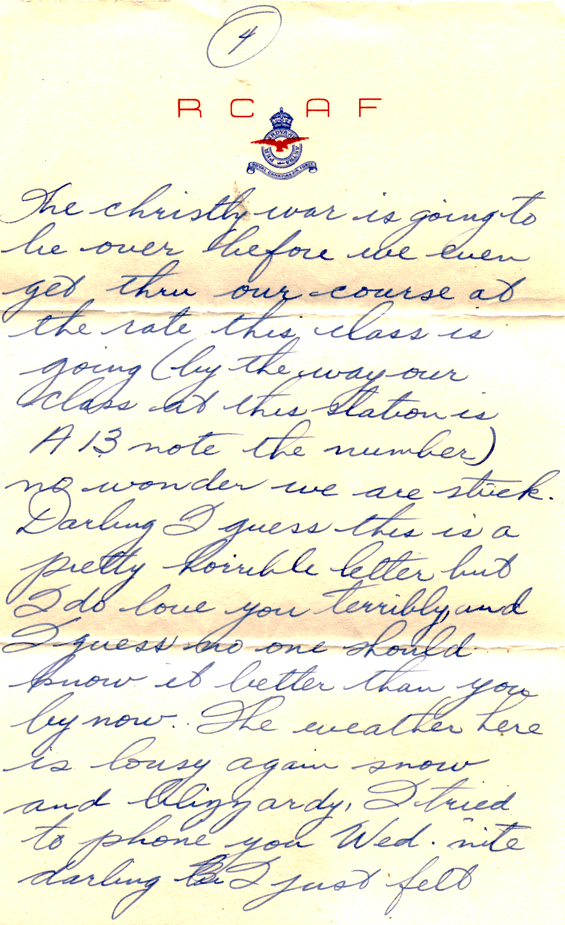 4
R C A F
ROYAL CANADIAN AIR FORCE
The christly war is going to
be over before we even
get thru our course at
the rate this class is
going (by the way our
class at this station is
A 13 note the number)
no wonder we are stuck.
Darling I guess this is a
pretty horrible letter but
I do love you terribly, and
I guess no one should
know it better than you
by now. The weather here
is lousy again snow
and blizzardy, I tried
to phone you Wed. nite
darling I just felt